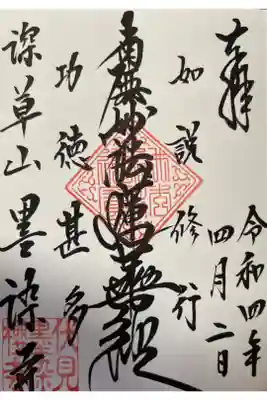 奉拝
令和四年
四月二日
如説修行
南無妙法蓮華経
功徳甚多
深草山墨染寺
伏見
墨染
櫻寺